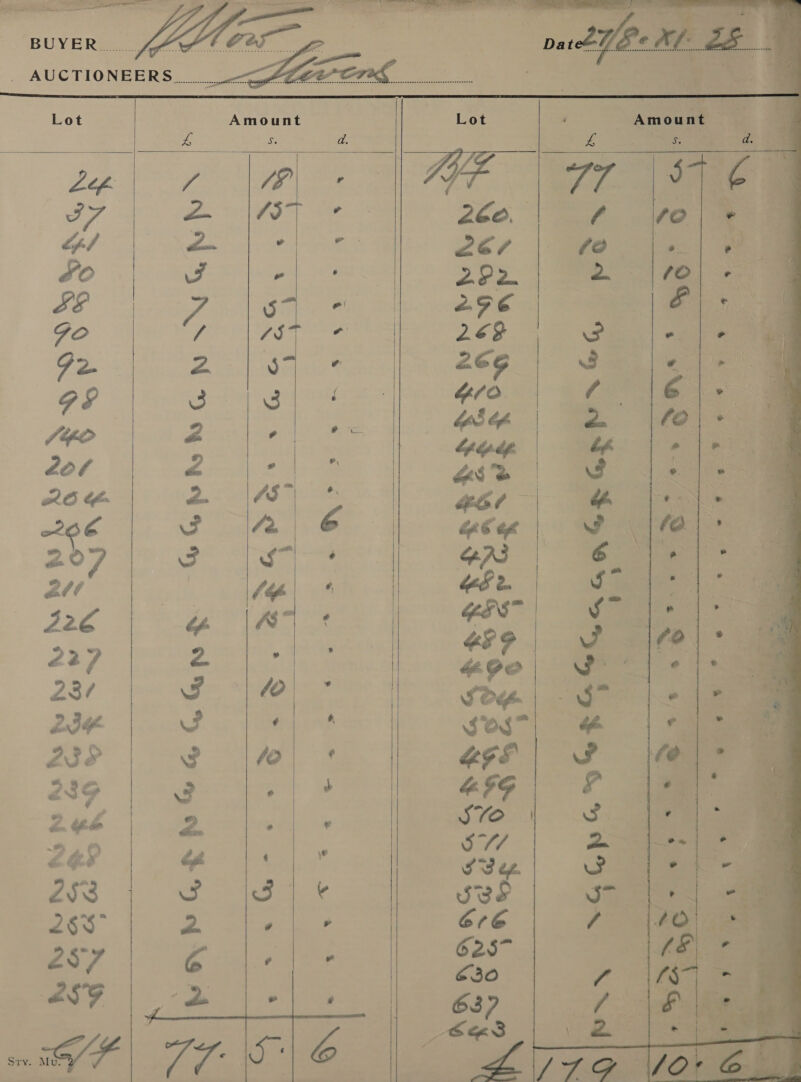 BUYER
AUCTIONEERS Stevens
Date 27/8 & XI. 28
Lot Amount
£ s. d.
24 1 18 -
37 2 15 -
41 2 - -
80 3 - -
88 7 5 -
90 1 15 -
92 2 5 -
98 3 3 -
140 2 - -
201 2 - -
204 2 15 -
206 3 12 6
207 3 5 -
211 14 -
226 4 15 -
227 2 - -
231 3 10 -
234 3 - -
238 3 10 -
239 3 - -
246 2 - -
248 4 - -
253 3 3 -
255 2 - -
257 6 - -
259 2 - -
C/F £77 . 5 . 6
Srv. Mu. 2
Lot Amount
£ s. d.
B/F 77 5 6
260. 1 10 -
261 10 - -
282 2 10 -
296 8 -
268 3 - -
269 3 - -
410 1 6 -
434 2 10 -
444 4 - -
452 3 - -
461 4 - -
464 3 10 -
473 6 - -
482 5 - -
485 5 - -
489 3 10 -
490 3 - -
504 5 - -
505 4 - -
498 3 10 -
499 8 - -
510 3 - -
511 2 - -
534 3 - -
538 5 - -
616 1 10 -
625 18 -
630 1 15 -
637 1 8 -
643 2 - -
£179 10 . 6